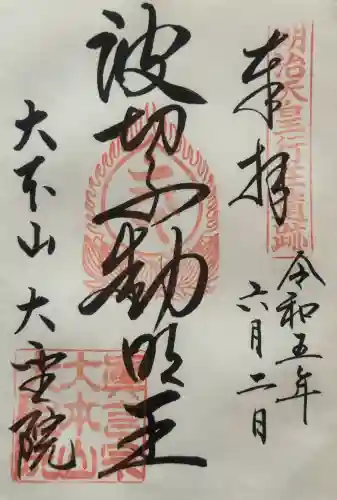 明治天皇行在遺跡
奉拝
令和五年
六月二日
波切不動明王
大本山 大聖院
真言宗
大本山